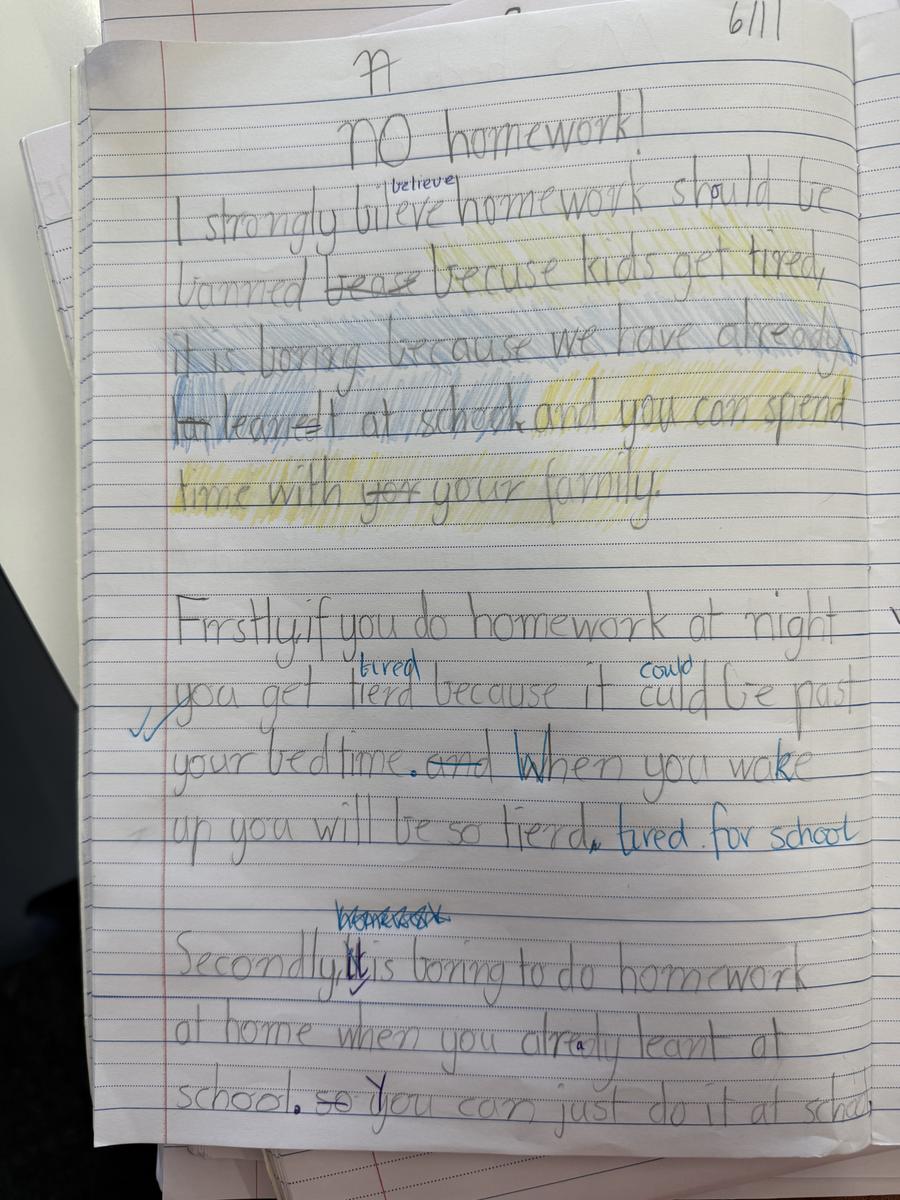 6/11
no homework!
believe
I strongly bileve homework should be
banned becase becuse kids get tired,
it is boring because we have already
leant at school. and you can spend
time with yor your family.
Firstly, if you do homework at night
tired could
you get tierd because it culd be past
your bedtime. and When you wake
up you will be so tierd, tired for school
Secondly, It is boring to do homework
at home when you already leant at
school. so You can just do it at school